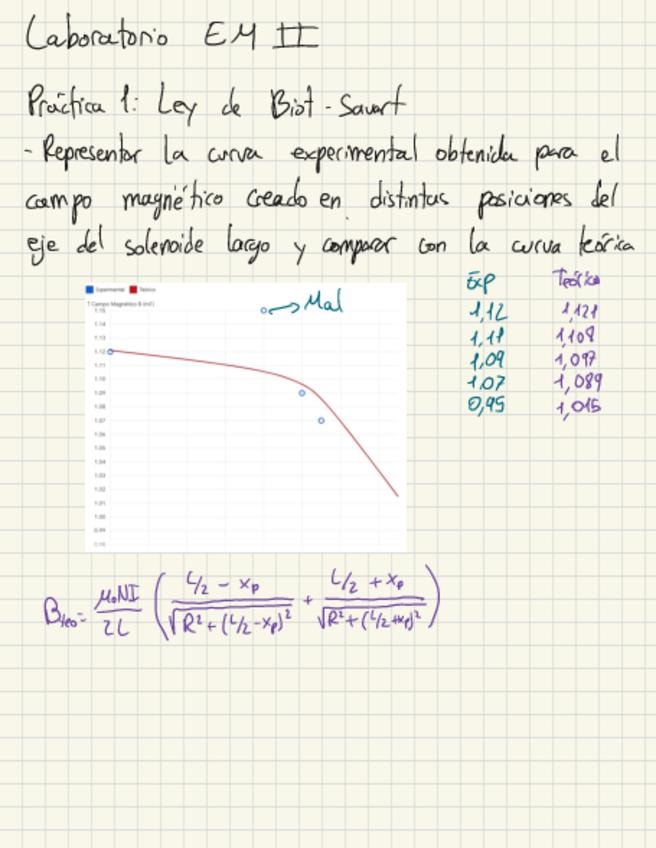 Laboratorio EM II
Práctica 1: Ley de Biot - Savart
- Representar la curva experimental obtenida para el
campo magnético creado en distintas posiciones del
eje del solenoide largo y comparar con la curva teórica
Experimental Teórico
Campo Magnético B (mT)
→ Mal
1.15
1.14
1.13
1.12
1.11
1.10
1.09
1.08
1.07
1.06
1.05
1.04
1.03
1.02
1.01
1.00
0.99
0.98
Exp Teórico
1,12 1,121
1,11 1,108
1,09 1,097
1,07 1,089
0,95 1,015
B_teo = μ₀NI / 2L ( (L/2 - xp) / √(R² + (L/2 - xp)²) + (L/2 + xp) / √(R² + (L/2 + xp)²) )